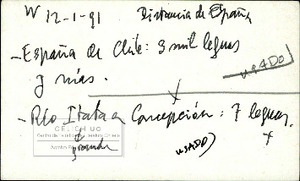 W 12-1-91 Distancia de España
- España de Chile: 3 mil leguas
y más.
USADO
- Río Itata a Concepción: 7 leguas.
CEDOH UC
USADO